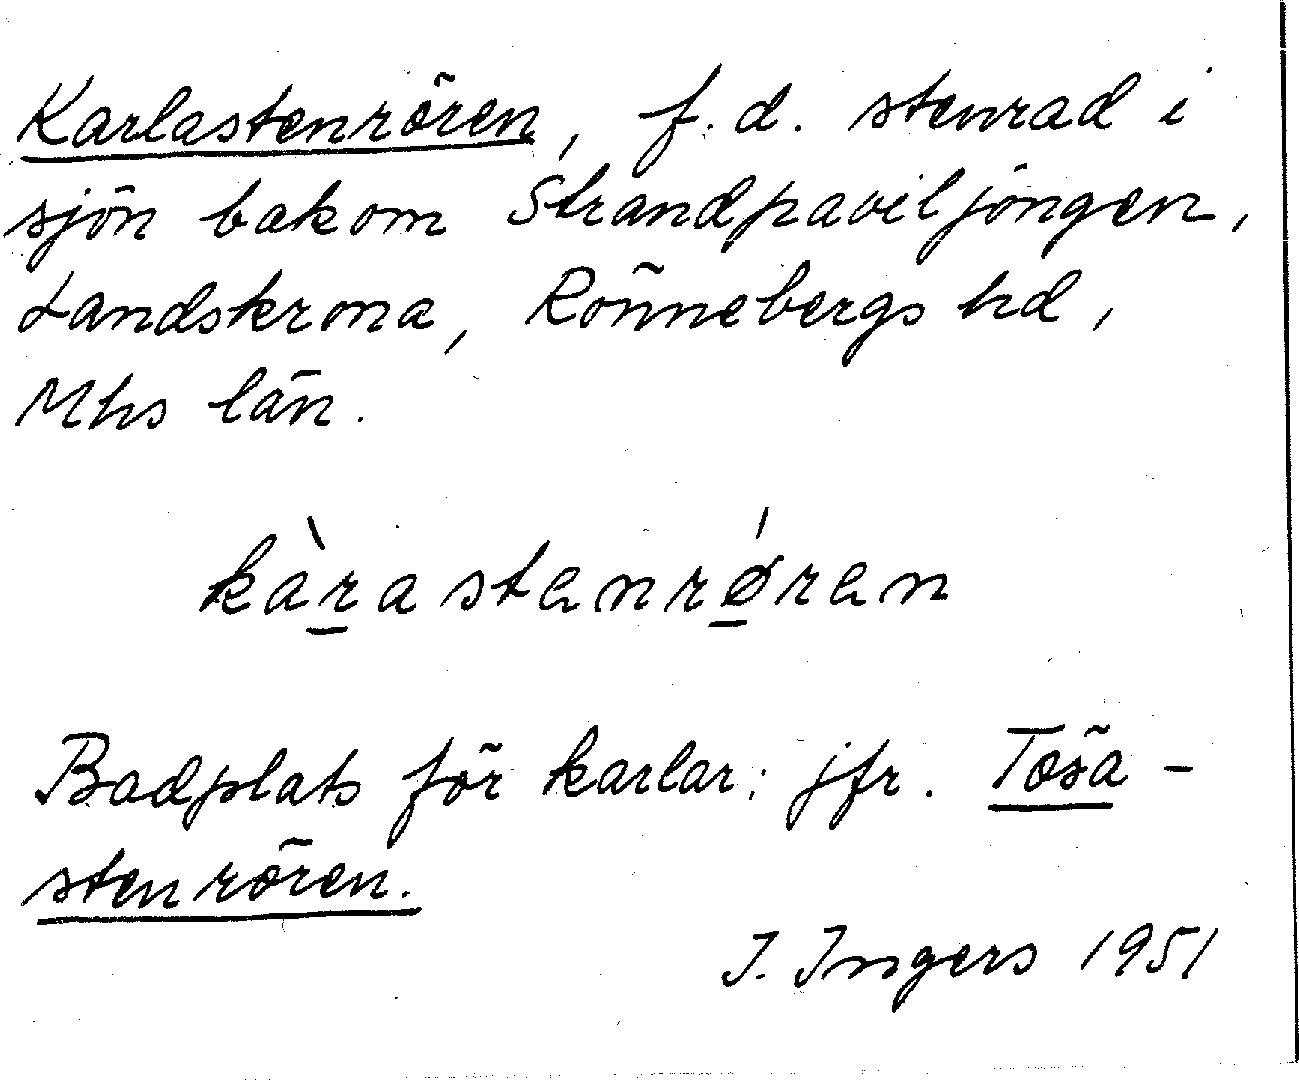 Karlastenrören, f.d. stenrad i
sjön bakom Strandpaviljongen,
Landskrona, Rönnebergs hd,
Mhs län.
kàrastenrǿren
Badplats för karlar; jfr. Tösa-
stenrören.
I. Ingers 1951